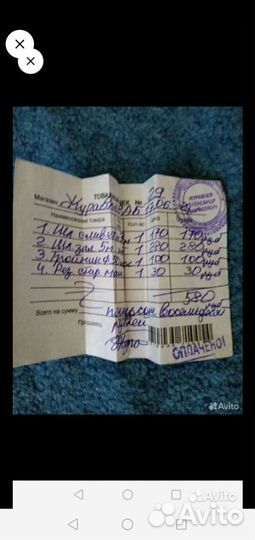 ТОВАРНЫЙ ЧЕК № 29
Магазин Журавлев АБ
Наименование товара Кол-во Цена
1. Шл слив 1 170 170 руб
2 Шл зал 5м 1 280 280 руб
3 Тройник 1 100 100 руб
4. Рез. стир маш 1 30 30 руб
580 руб
Всего на сумму пятьсот восемьдесят
рублей
Продавец
ОПЛАЧЕНО!
Avito
Avito
Avito